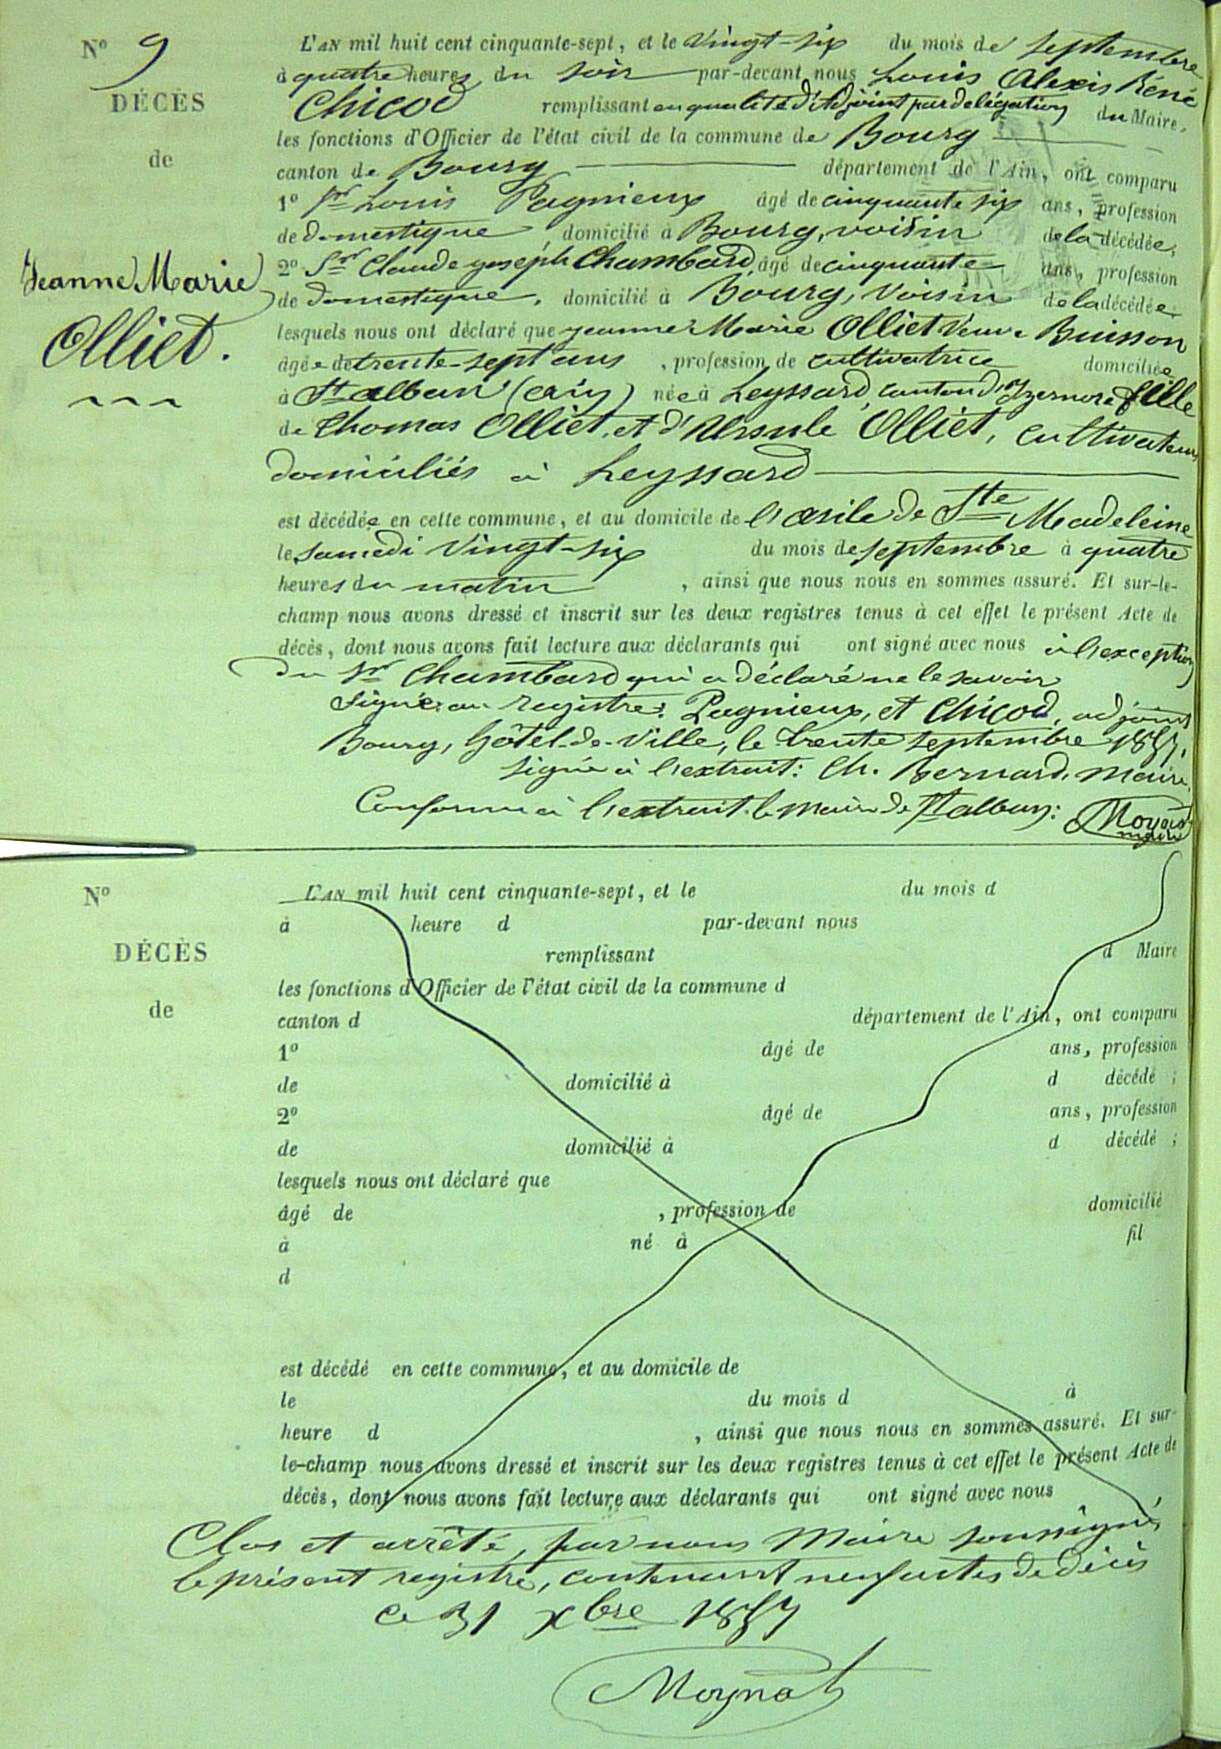 N° 9
DÉCÈS
de
Jeanne Marie
Olliet.
L'AN mil huit cent cinquante-sept, et le vingt-six du mois de septembre
à quatre heures du soir par-devant nous Louis Alexis Réné
Chicod remplissant en qualité d'Adjoint par délégation du Maire,
les fonctions d'Officier de l'état civil de la commune de Bourg
canton de Bourg département de l'Ain, ont comparu
1° Sr Louis Pagnieux âgé de cinquante six ans, profession
de domestique, domicilié à Bourg, voisin de la décédée;
2° Sr Claude joséph Chambard, âgé de cinquante ans, profession
de domestique, domicilié à Bourg, voisin de la décédée,
lesquels nous ont déclaré que jeanne Marie Olliet veuve Buisson
âgée de trente-sept ans, profession de cultivatrice domiciliée
à St alban (ain) née à Leyssard, canton d'Izernore fille
de Thomas Olliet, et d'Ursule Olliet, cultivateurs
domiciliés à Leyssard
est décédée en cette commune, et au domicile de l'asile de Ste Madeleine
le samedi vingt-six du mois de septembre à quatre
heures du matin, ainsi que nous nous en sommes assuré. Et sur-le-
champ nous avons dressé et inscrit sur les deux registres tenus à cet effet le présent Acte de
décès, dont nous avons fait lecture aux déclarants qui ont signé avec nous à l'exception
du Sr Chambard qui a déclaré ne le savoir
signé au registre: Pagnieux, et Chicod, adjoint
Bourg, hôtel-de-ville, le trente septembre 1857,
signé à l'extrait: Ch. Bernard, maire.
Conforme à l'extrait. le Maire de St alban: Moynat
maire
N°
DÉCÈS
de
L'AN mil huit cent cinquante-sept, et le du mois d
à heure d par-devant nous
remplissant d Maire
les fonctions d'Officier de l'état civil de la commune d
canton d département de l'Ain, ont comparu
1° âgé de ans, profession
de domicilié à d décédé ;
2° âgé de ans, profession
de domicilié à d décédé ;
lesquels nous ont déclaré que
âgé de , profession de domicilié
à né à fil
d
est décédé en cette commune, et au domicile de
le du mois d à
heure d , ainsi que nous nous en sommes assuré. Et sur-
le-champ nous avons dressé et inscrit sur les deux registres tenus à cet effet le présent Acte de
décès, dont nous avons fait lecture aux déclarants qui ont signé avec nous
Clos et arrêté, par nous Maire soussigné,
le présent registre, contenant neuf actes de décès
ce 31 Xbre 1857
Moynat